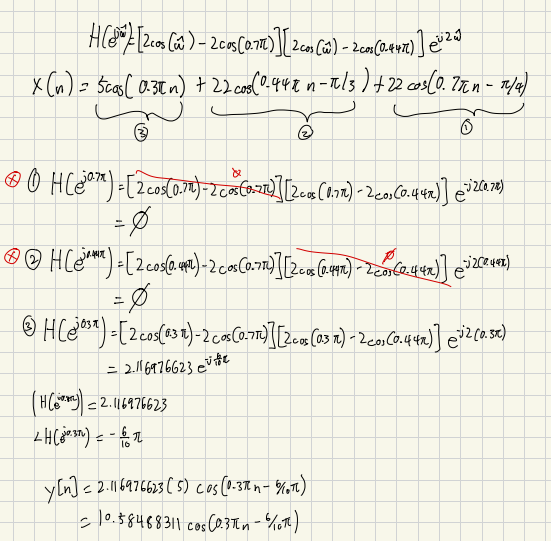 H(e^jω̂)=[2cos(ω̂)-2cos(0.7π)][2cos(ω̂)-2cos(0.44π)]e^-j2ω̂
X(n) = 5cos(0.3πn) + 22cos(0.44πn-π/3) + 22cos(0.7πn-π/4)
③ ② ①
⊗ ① H(e^j0.7π)=[2cos(0.7π)-2cos(0.7π)][2cos(0.7π)-2cos(0.44π)] e^-j2(0.7π)
= ∅
⊗ ② H(e^j0.44π)=[2cos(0.44π)-2cos(0.7π)][2cos(0.44π)-2cos(0.44π)] e^-j2(0.44π)
= ∅
③ H(e^j0.3π)=[2cos(0.3π)-2cos(0.7π)][2cos(0.3π)-2cos(0.44π)] e^-j2(0.3π)
= 2.116976623 e^-j6/10π
|H(e^j0.3π)| = 2.116976623
∠H(e^j0.3π) = -6/10 π
y[n] = 2.116976623(5) cos(0.3πn-6/10π)
= 10.58488311 cos(0.3πn-6/10π)